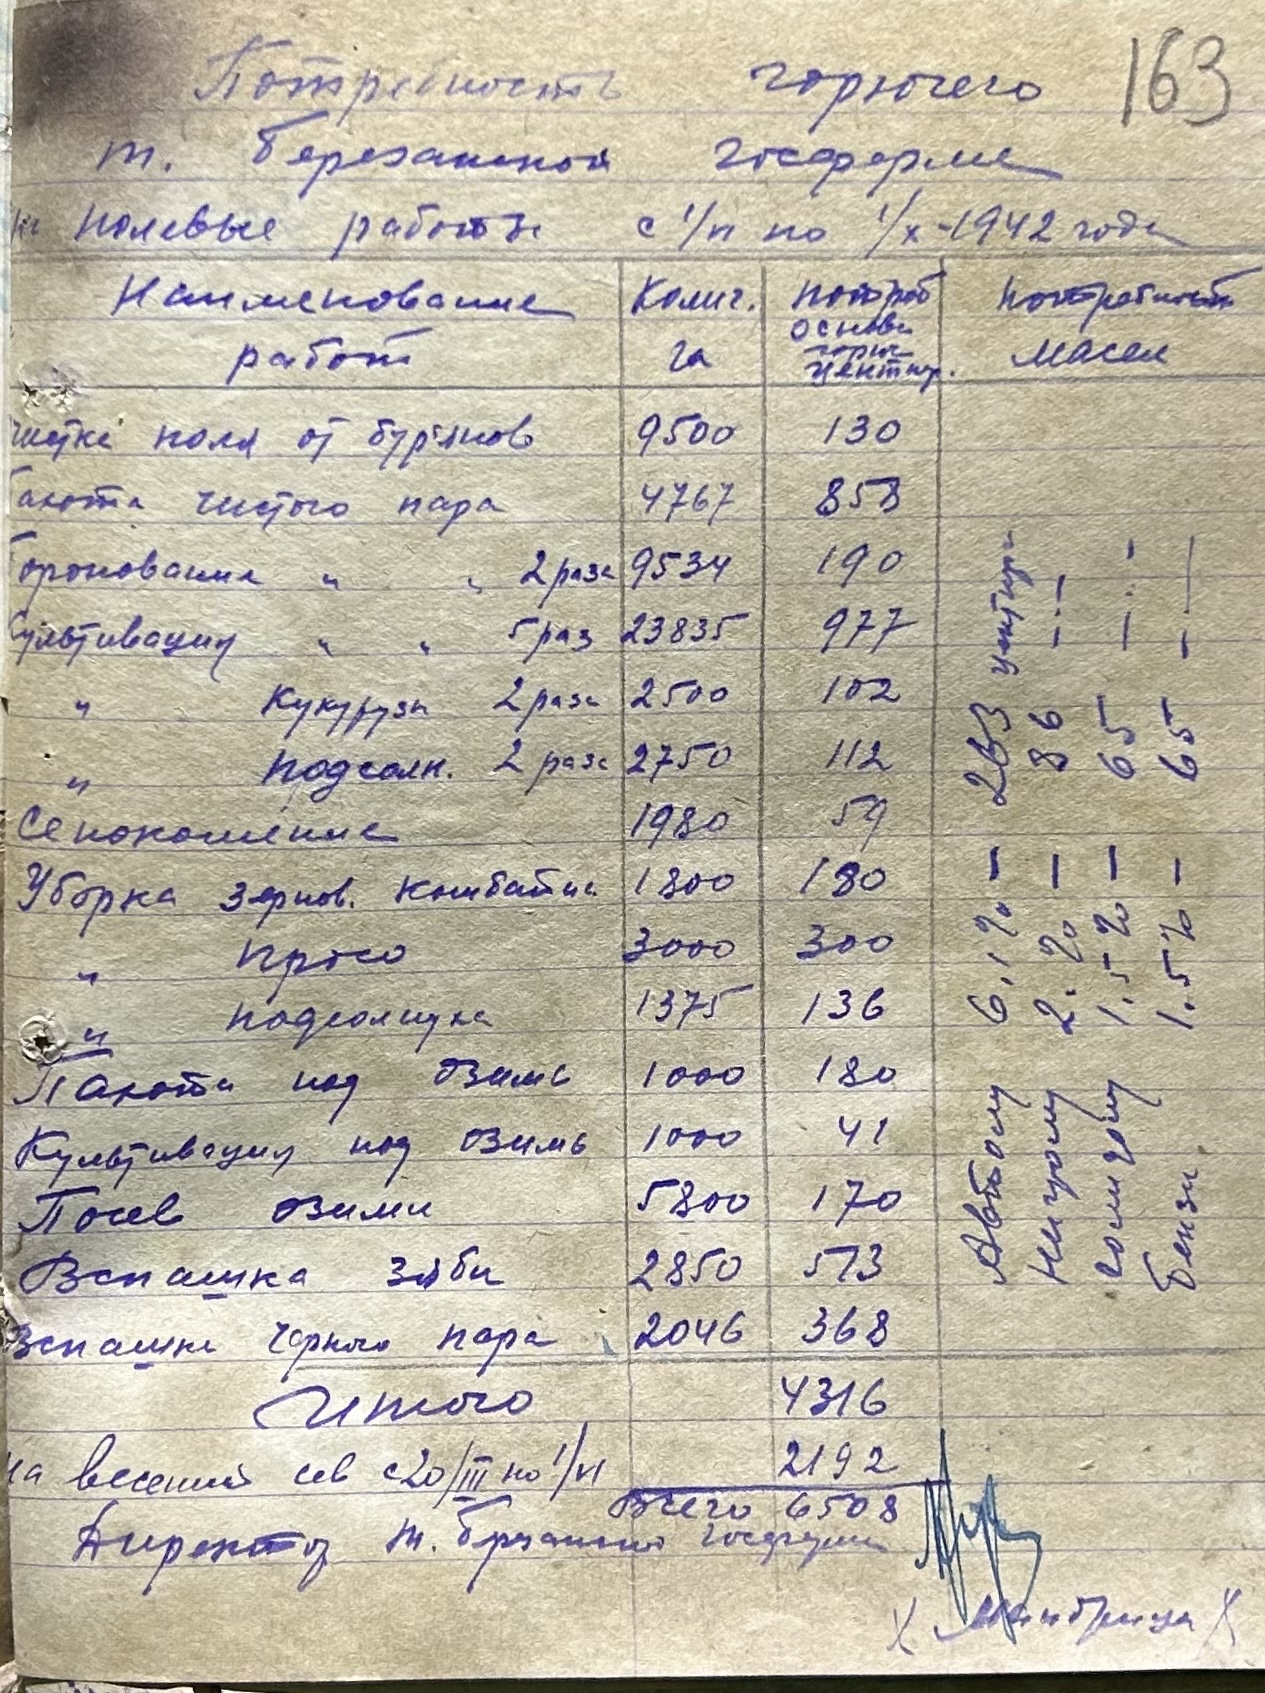 163
Потребность горючего
т. Березанской госферме
на полевые работы с 1/VI по 1/X-1942 года
Наименование работ Колич. га потреб основн горюч центнр. потребность масел
Чистка поля от бурьянов 9500 130
Пахота чистого пара 4767 858
Боронование " " 2 раза 9534 190
Культивация " " 5 раз 23835 977
" Кукурузы 2 раза 2500 102
" подсолн. 2 раза 2750 112
Сенокошение 1980 59
Уборка зернов. комбайна 1800 180
" просо 3000 300
" подсолнука 1375 136
Пахота под озимь 1000 180
Культивация под озимь 1000 41
Посев озими 5800 170
Вспашка зяби 2850 513
Вспашка черного пара 2046 368
Итого 4316
на весений сев с 20/III по 1/VI 2192
Всего 6508
Автолу 6,1% — 263 центнр
Нигролу 2.% — 86 — " —
Солидолу 1.5% — 65 — " —
Бензи 1.5% — 65 — " —
Директор т. Березанской госфермы